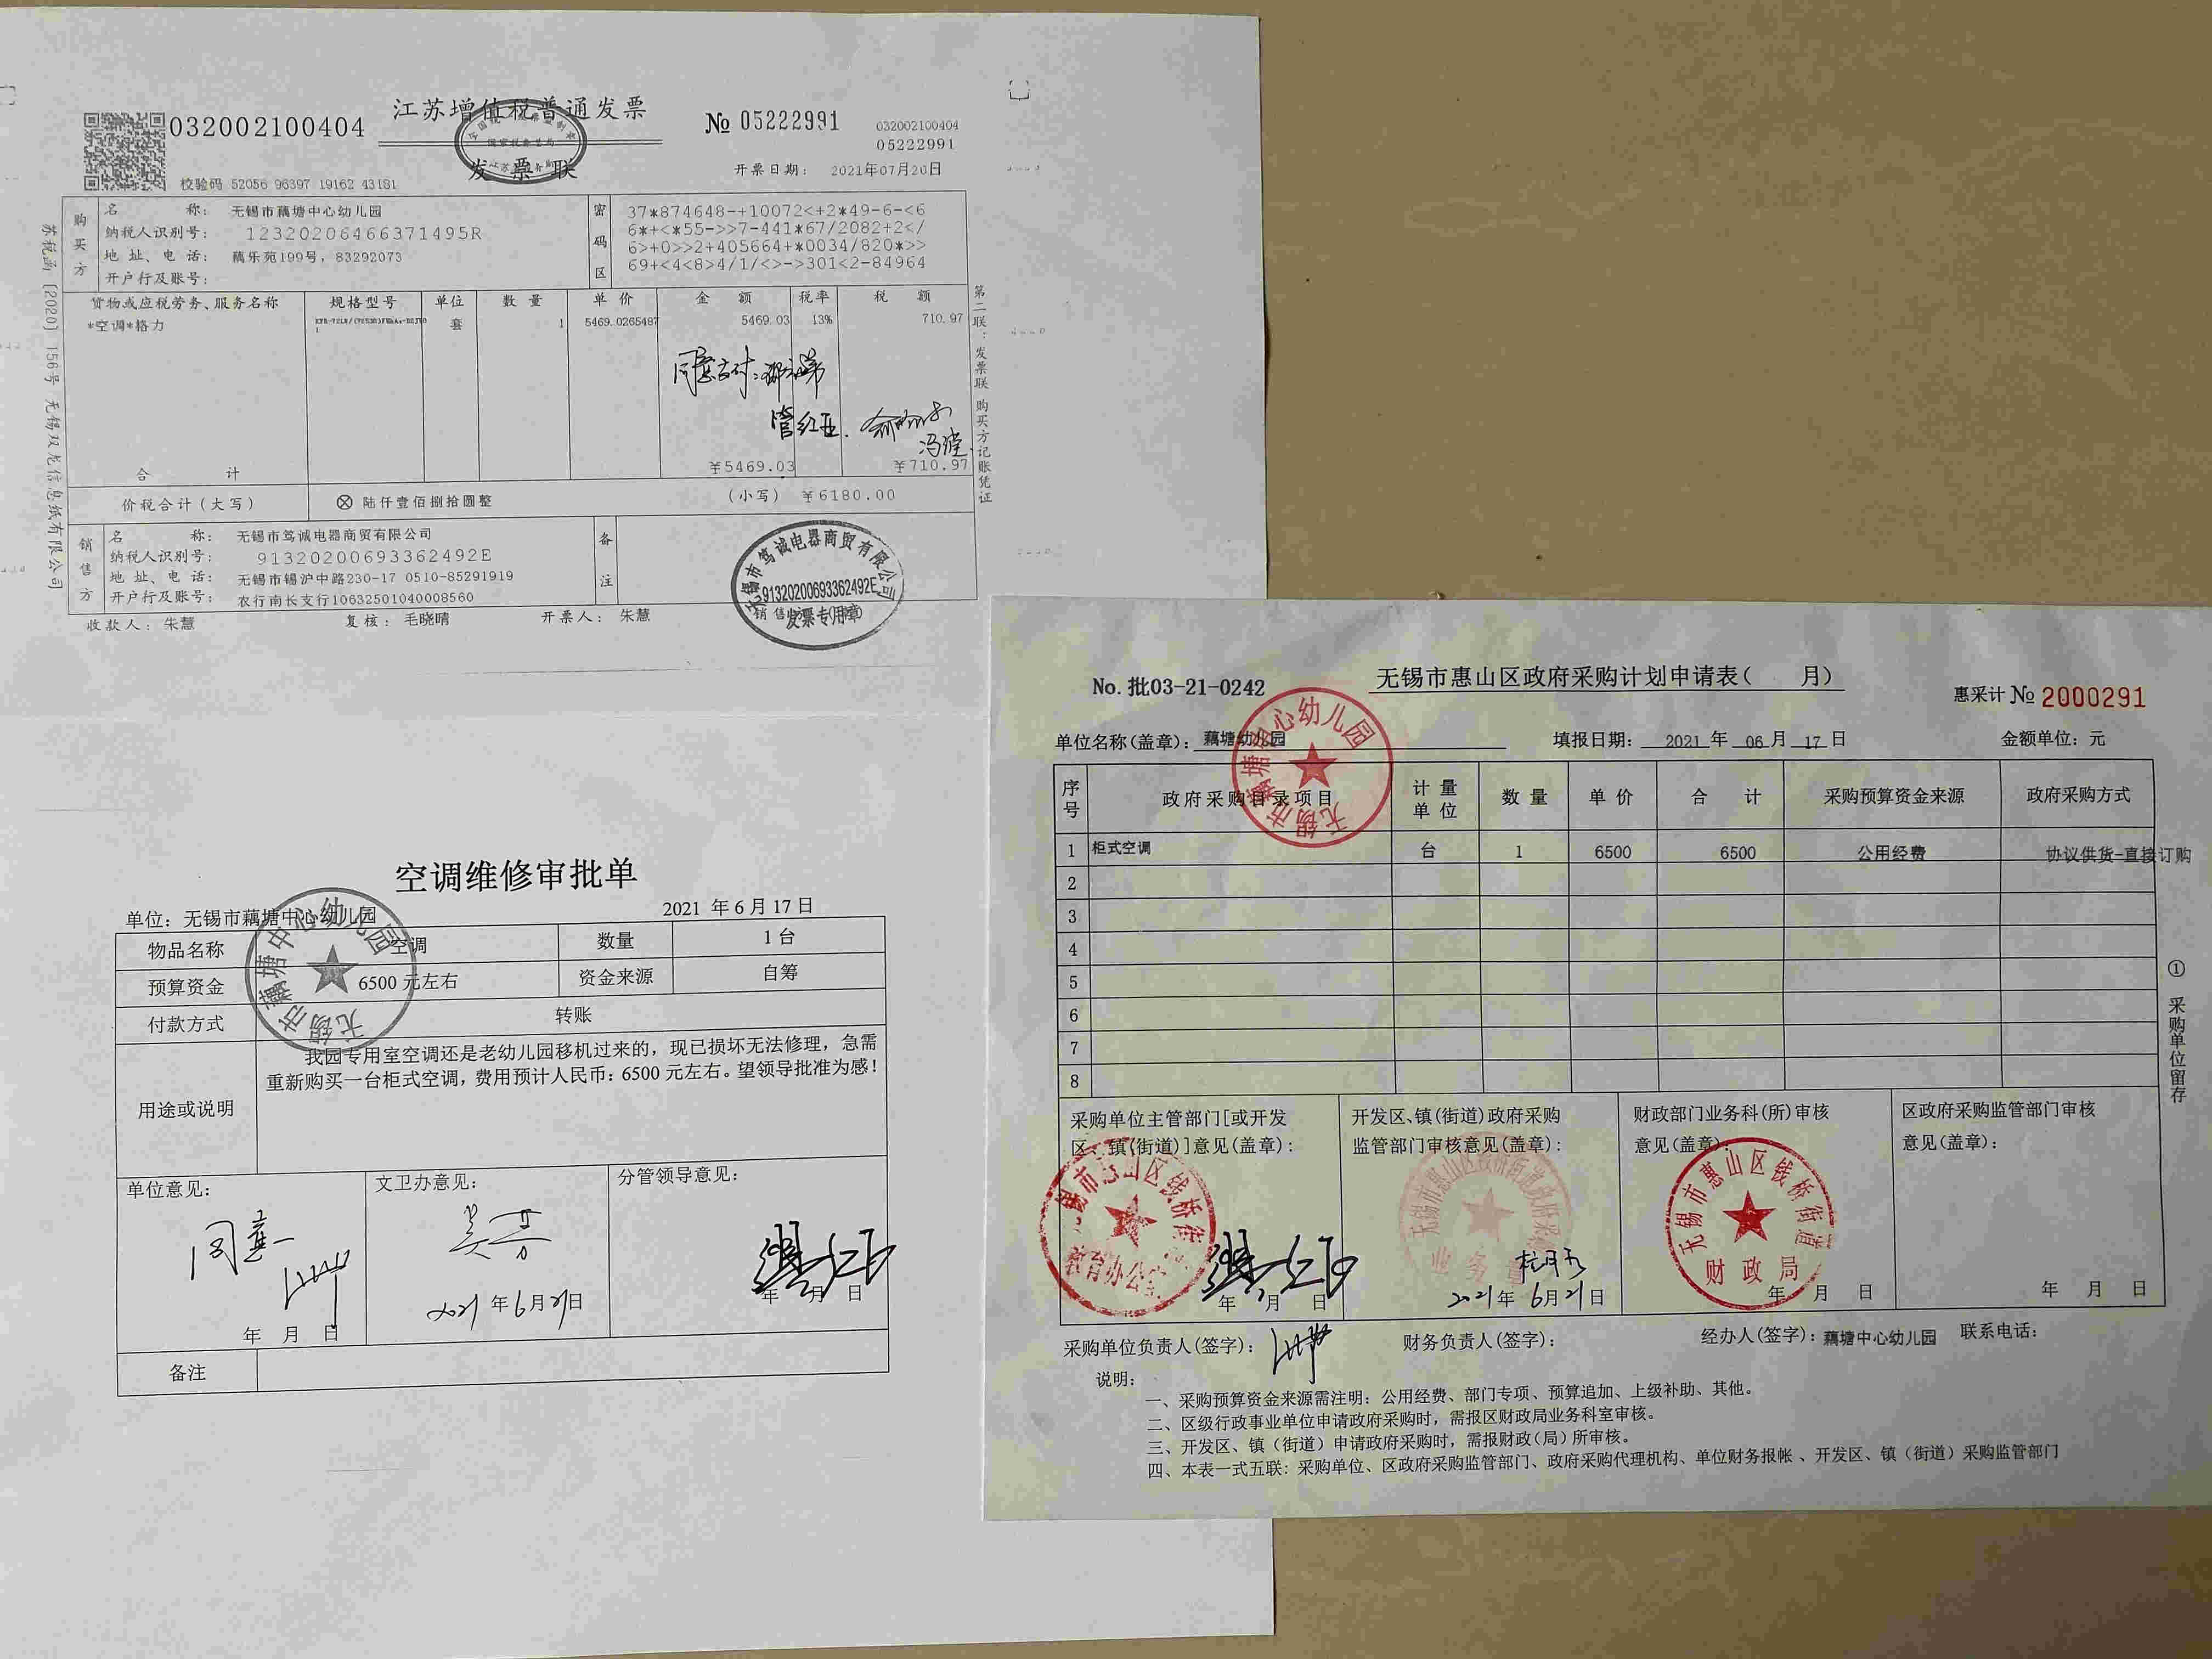 江苏增值税普通发票
发票联
032002100404
№ 05222991
032002100404
05222991
校验码 52056 96397 19162 43181
开票日期： 2021年07月20日
购买方
名 称： 无锡市藕塘中心幼儿园
纳税人识别号： 12320206466371495R
地 址、电 话： 藕乐苑199号，83292073
开户行及账号：
密码区
37*874648-+10072<+2*49-6-<6
6*+<*55->>7-441*67/2082+2</
6>+0>>2+405664+*0034/820*>>
69+<4<8>4/1/<>->301<2-84964
货物或应税劳务、服务名称 规格型号 单位 数 量 单 价 金 额 税率 税 额
*空调*格力 套 1 5469.0265487 5469.03 13% 710.97
同意支付
管红亚
冯滢
合 计 ￥5469.03 ￥710.97
价税合计（大写） ⊗ 陆仟壹佰捌拾圆整 （小写） ￥6180.00
销售方
名 称： 无锡市笃诚电器商贸有限公司
纳税人识别号： 91320200693362492E
地 址、电 话： 无锡市锡沪中路230-17 0510-85291919
开户行及账号： 农行南长支行10632501040008560
备注
收款人： 朱慧 复核： 毛晓晴 开票人： 朱慧
无锡市笃诚电器商贸有限公司
91320200693362492E
发票专用章
苏税函〔2020〕156号 无锡双龙信息纸有限公司
第二联：发票联 购买方记账凭证
空调维修审批单
单位：无锡市藕塘中心幼儿园 2021 年 6 月 17 日
物品名称 空调 数量 1 台
预算资金 6500 元左右 资金来源 自筹
付款方式 转账
用途或说明
我园专用室空调还是老幼儿园移机过来的，现已损坏无法修理，急需
重新购买一台柜式空调，费用预计人民币：6500 元左右。望领导批准为感！
单位意见： 文卫办意见： 分管领导意见：
同意
2021 年 6 月 21 日
年 月 日
年 月 日
备注
无锡市藕塘中心幼儿园
No. 批03-21-0242
无锡市惠山区政府采购计划申请表( 月)
惠采计 № 2000291
单位名称(盖章)： 藕塘幼儿园 填报日期： 2021 年 06 月 17 日 金额单位：元
无锡市藕塘中心幼儿园
序号 政府采购目录项目 计量单位 数 量 单 价 合 计 采购预算资金来源 政府采购方式
1 柜式空调 台 1 6500 6500 公用经费 协议供货-直接订购
2
3
4
5
6
7
8
① 采购单位留存
采购单位主管部门[或开发
区、镇(街道)]意见(盖章)：
年 月 日
开发区、镇(街道)政府采购
监管部门审核意见(盖章)：
2021 年 6 月 21 日
财政部门业务科(所)审核
意见(盖章)
无锡市惠山区钱桥街道
财政局
年 月 日
区政府采购监管部门审核
意见(盖章)：
年 月 日
采购单位负责人(签字)： 财务负责人(签字)： 经办人(签字)：藕塘中心幼儿园 联系电话：
说明：
一、采购预算资金来源需注明：公用经费、部门专项、预算追加、上级补助、其他。
二、区级行政事业单位申请政府采购时，需报区财政局业务科室审核。
三、开发区、镇（街道）申请政府采购时，需报财政（局）所审核。
四、本表一式五联：采购单位、区政府采购监管部门、政府采购代理机构、单位财务报帐、开发区、镇（街道）采购监管部门